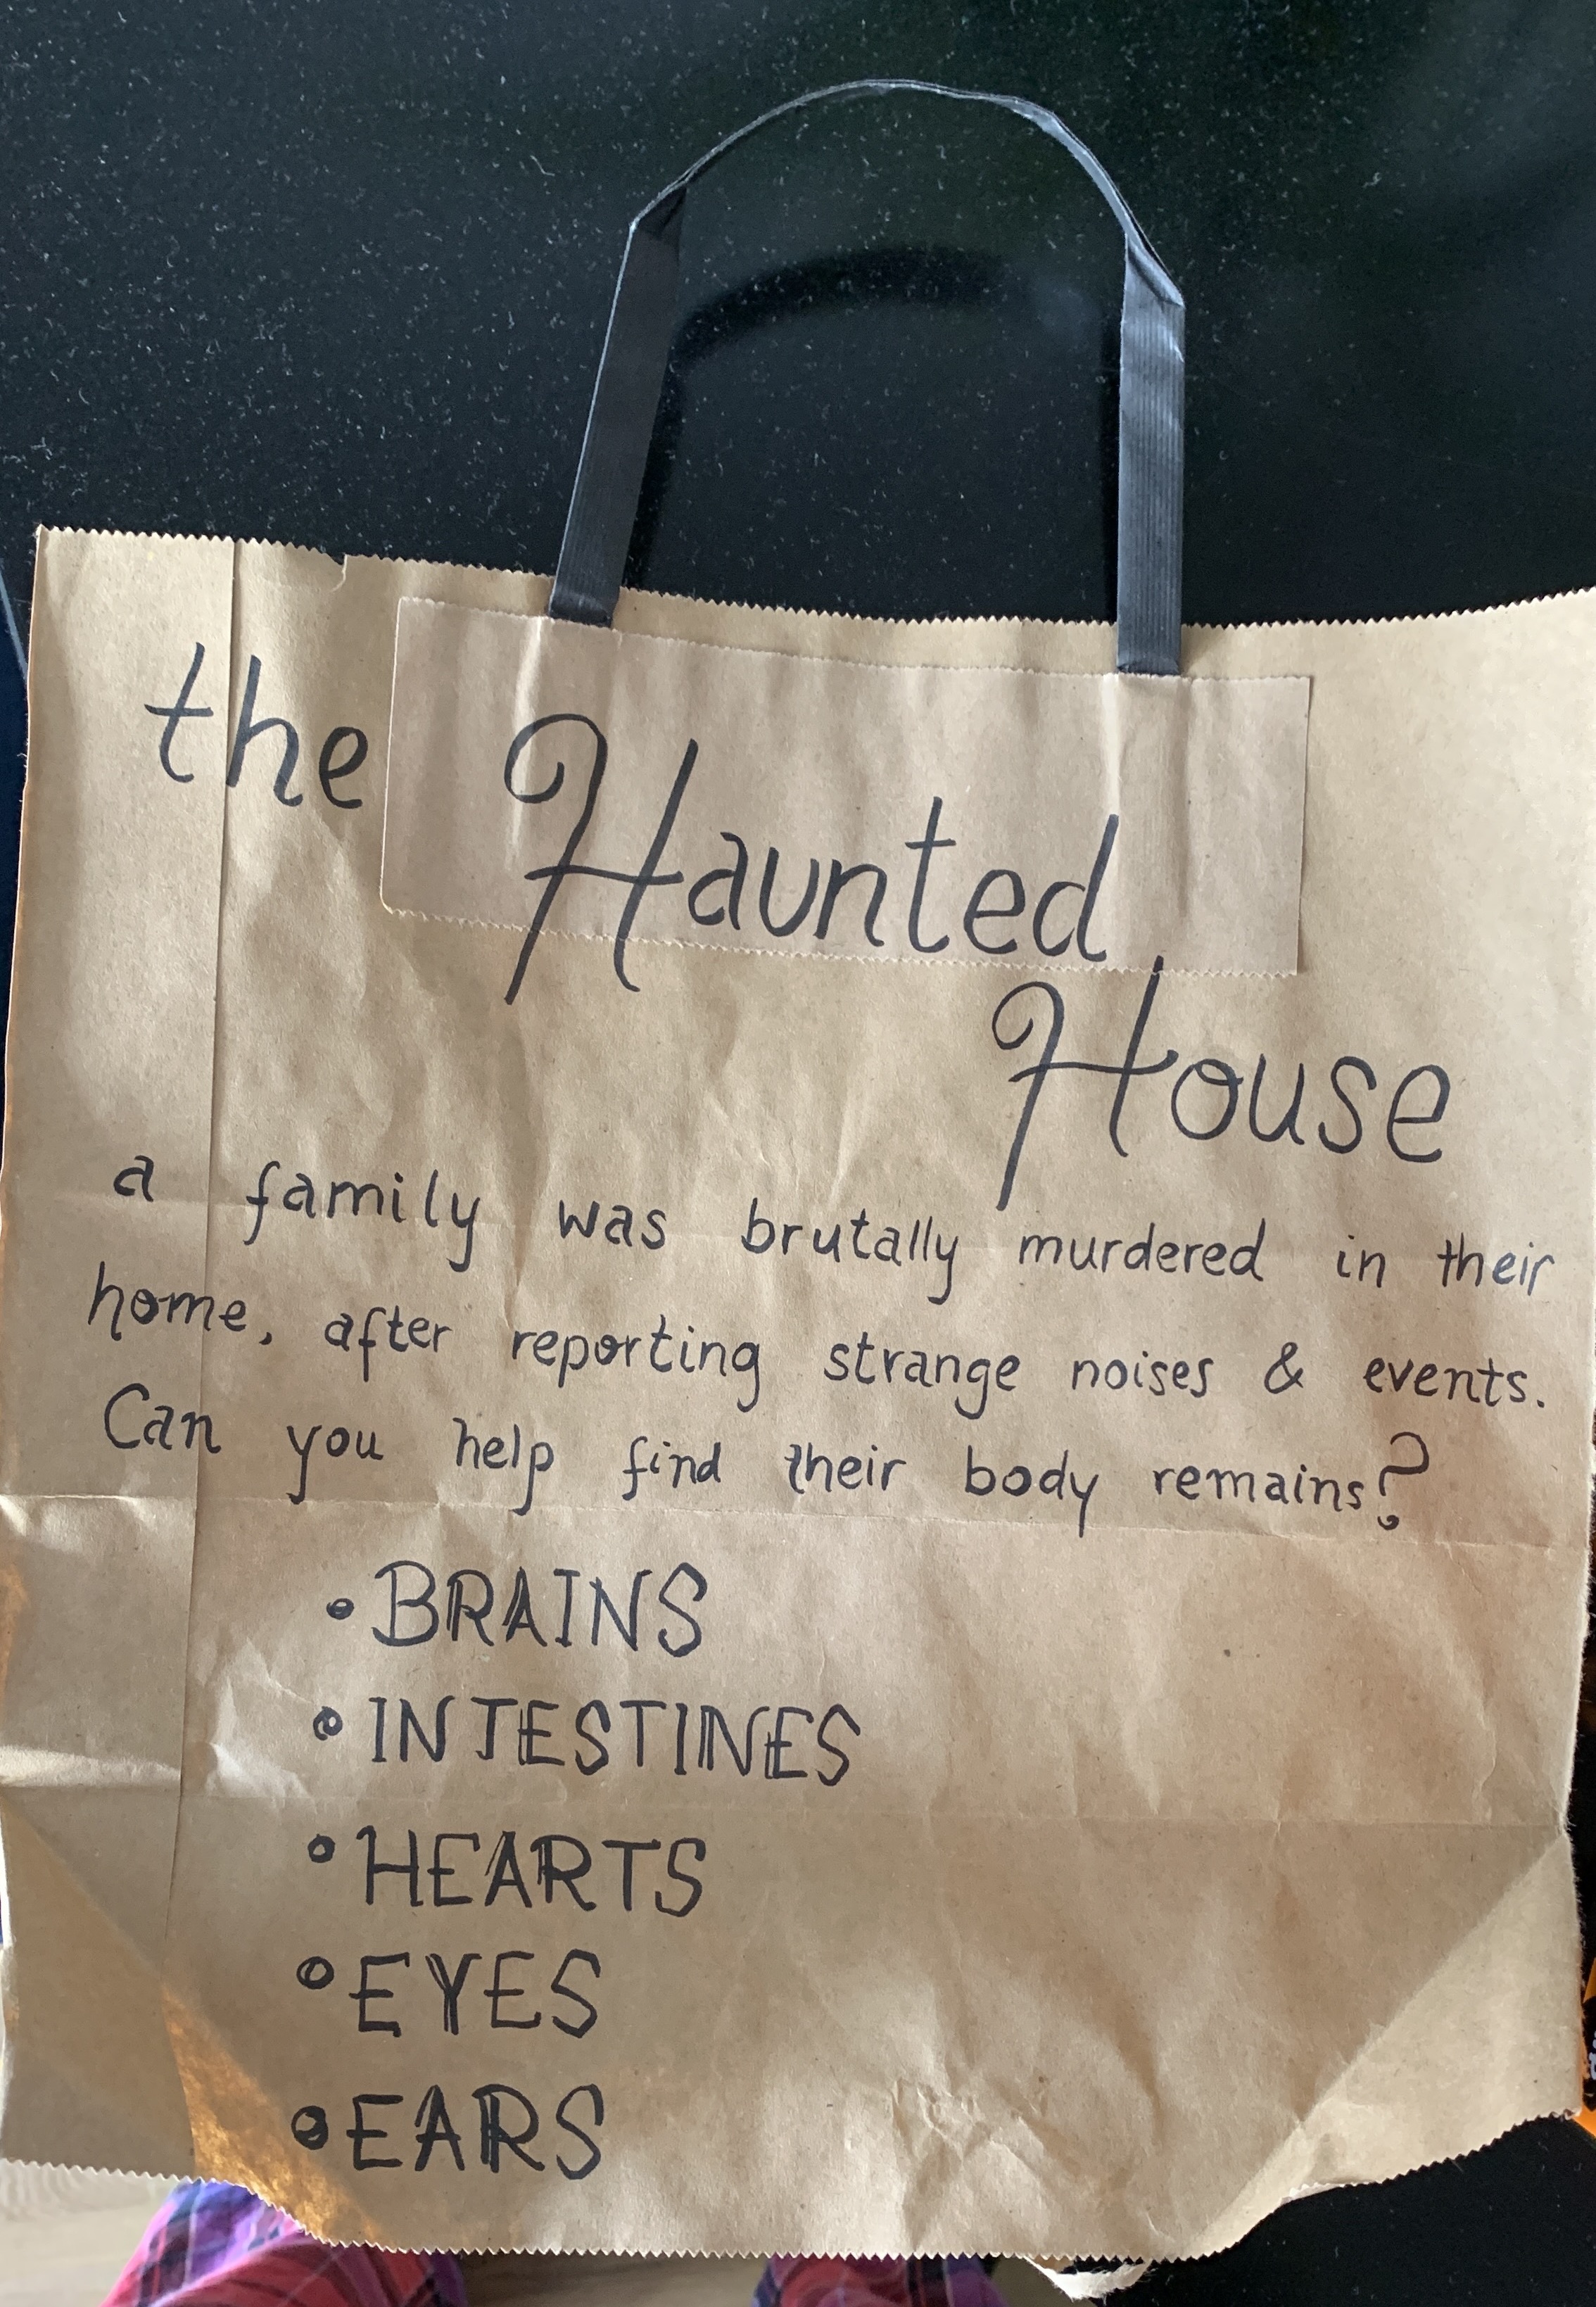 the Haunted
House
a family was brutally murdered in their
home, after reporting strange noises & events.
Can you help find their body remains?
• BRAINS
• INTESTINES
• HEARTS
• EYES
• EARS